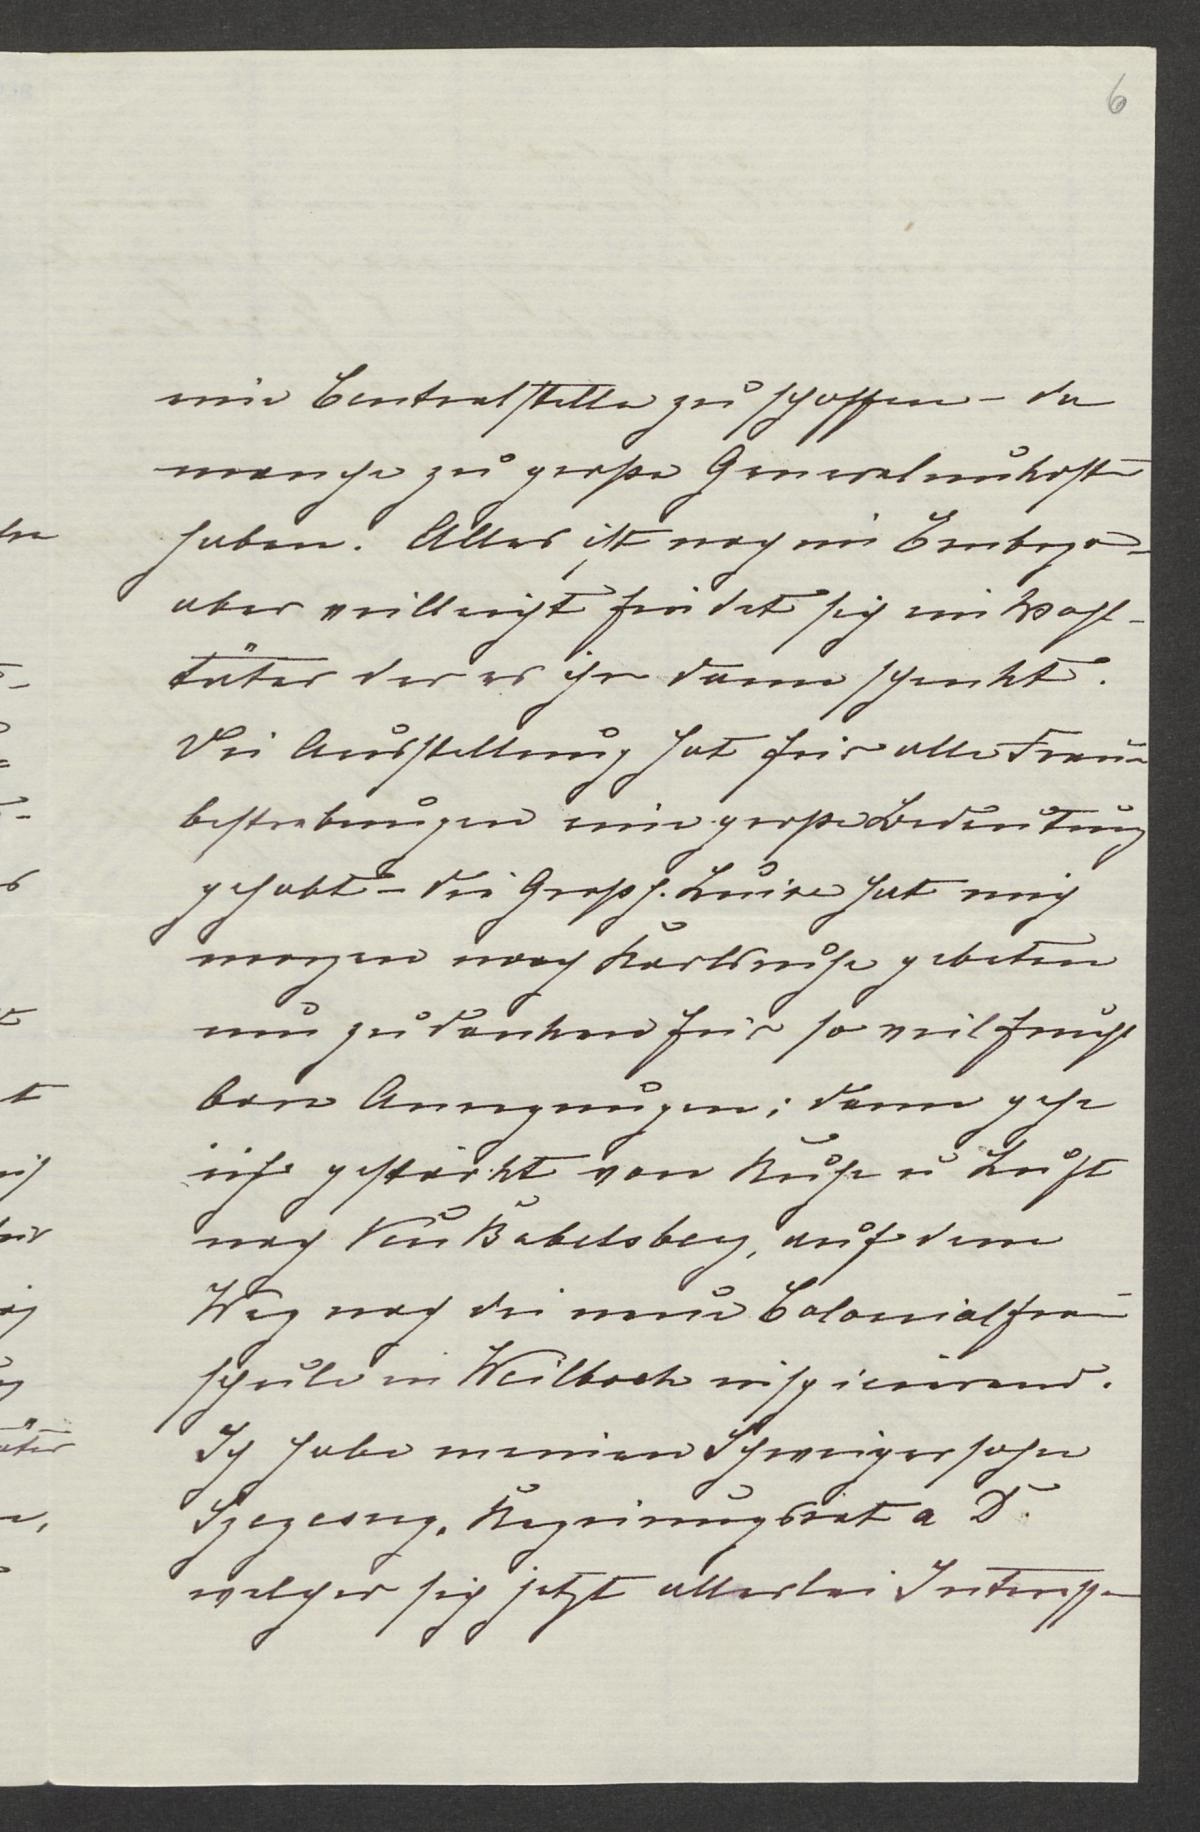 6
eine Centralstelle zu schaffen – da
manche zu große Generalunkosten
haben. Alles ist noch im Embryo –
aber vielleicht findet sich ein Wohl-
täter der es ihr dann schenkt.
Die Ausstellung hat für alle Frauen
bestrebungen eine große Bedeutung
gehabt – die Großh. Luise hat mich
morgen nach Karlsruhe gebeten
um zu danken für so viel frucht
bare Anregungen; dann gehe
ich gestärkt von Ruhe u Luft
nach Neu Babelsberg, auf dem
Weg noch die neue Colonialfrauen
schule in Weilbach inspicierend.
Ich habe meinen Schwiegersohn
Regierungsrat a D.
welcher sich jetzt allerlei Interessen